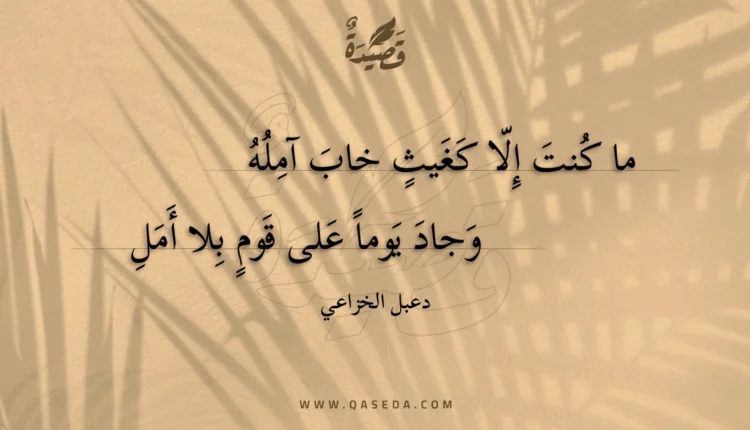 قَصِيدَةٌ
ما كُنتَ إِلّا كَغَيثٍ خابَ آمِلُهُ
وَجادَ يَوماً عَلى قَومٍ بِلا أَمَلِ
دعبل الخزاعي
WWW.QASEDA.COM